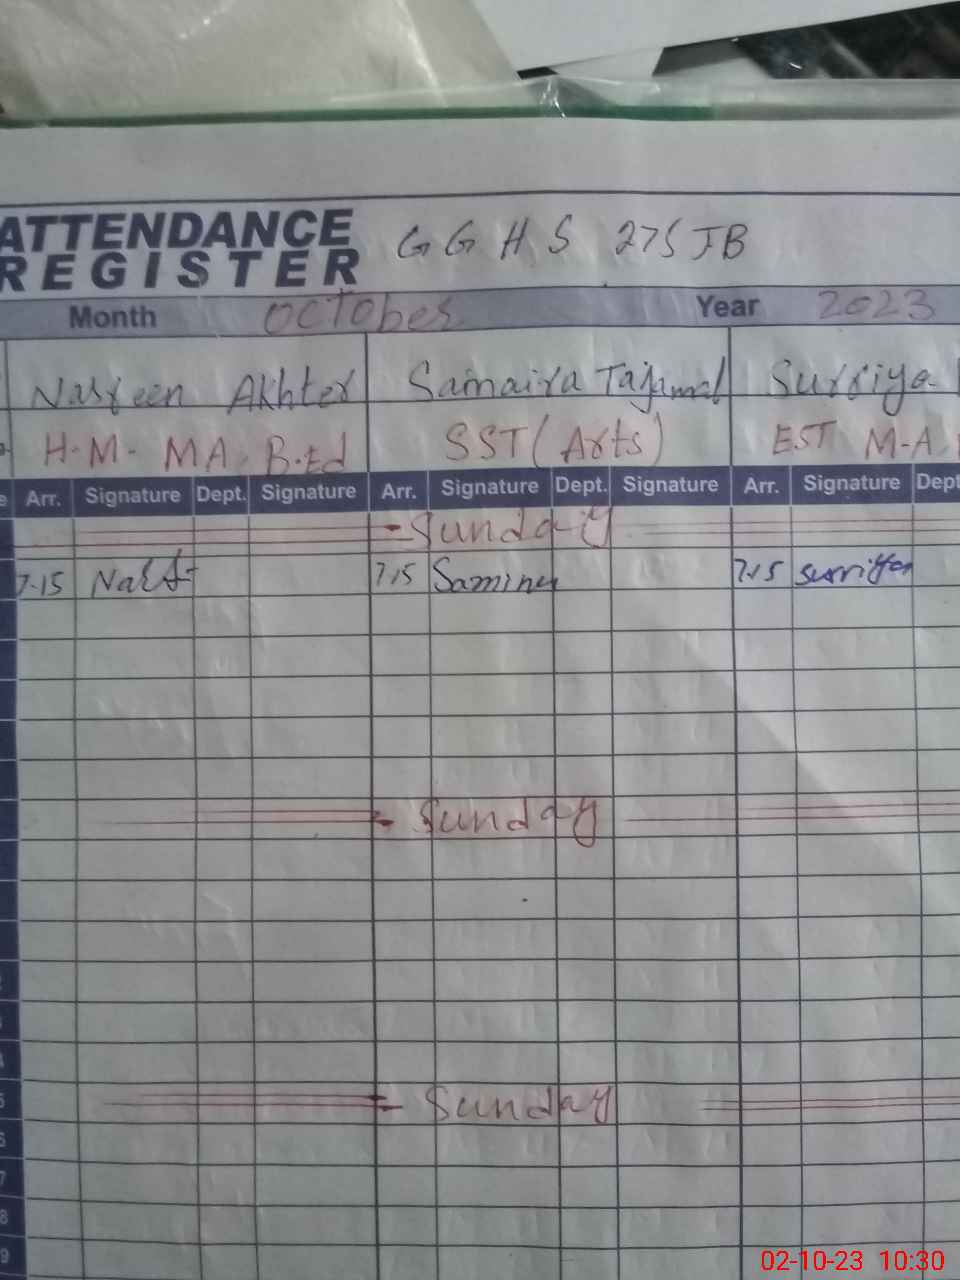 ATTENDANCE
REGISTER
G G H S 275 JB
Month October Year 2023
Nasreen Akhter Samaira Tajamal Surriya
H.M. MA. B.Ed SST (Arts) EST M.A.
Arr. Signature Dept. Signature Arr. Signature Dept. Signature Arr. Signature Dept
Sunday
7.15 7.15 7.15
Sunday
Sunday
6
7
8
9
02-10-23 10:30